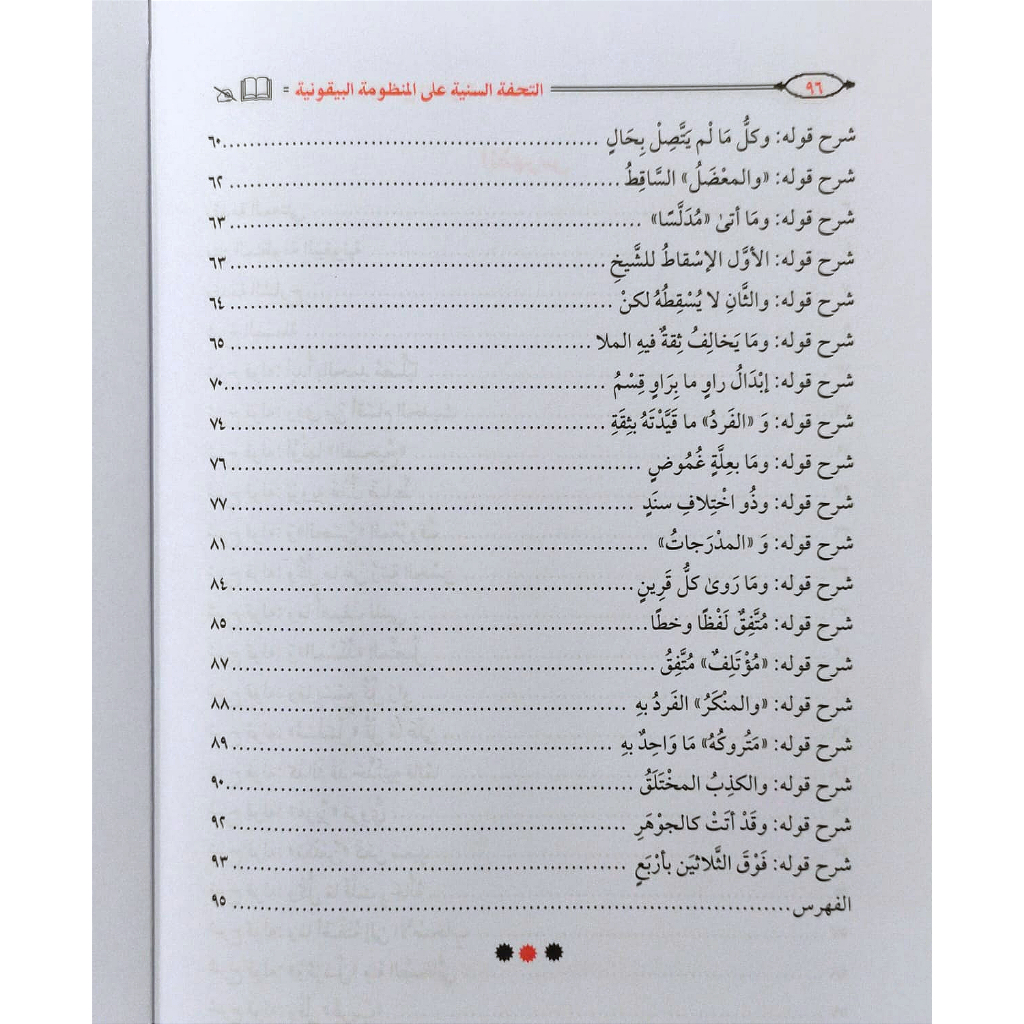 ٩٦ التحفة السنية على المنظومة البيقونية =
شرح قوله: وكلُّ مَا لْم يَتَّصِلْ بِحَالٍ ........ ٦٠
شرح قوله: «والمعْضَلُ» السَّاقِطُ ........ ٦٢
شرح قوله: ومَا أتىٰ «مُدَلَّسًا» ........ ٦٣
شرح قوله: الأوَّل الإسْقاطُ للشَّيخِ ........ ٦٣
شرح قوله: والثَّانِ لا يُسْقِطُهُ لكنْ ........ ٦٤
شرح قوله: ومَا يَخالِفُ ثِقةٌ فيهِ الملا ........ ٦٥
شرح قوله: إبْدَالُ راوٍ ما بِرَاوٍ قِسْمُ ........ ٧٠
شرح قوله: وَ «الفَردُ» ما قَيَّدْتَهُ بثِقَةِ ........ ٧٤
شرح قوله: ومَا بعِلَّةٍ غُمُوضٍ ........ ٧٦
شرح قوله: وذُو اخْتِلافِ سنَدٍ ........ ٧٧
شرح قوله: وَ «المدْرَجاتُ» ........ ٨١
شرح قوله: ومَا رَوىٰ كلُّ قَرِينٍ ........ ٨٤
شرح قوله: مُتَّفِقٌ لَفْظًا وخطًا ........ ٨٥
شرح قوله: «مُؤْتَلِفٌ» مُتَّفِقُ ........ ٨٧
شرح قوله: «والمنْكَرُ» الفَردُ بهِ ........ ٨٨
شرح قوله: «مَتُروكُهُ» مَا وَاحِدٌ بهِ ........ ٨٩
شرح قوله: والكذِبُ المخْتَلَقُ ........ ٩٠
شرح قوله: وقَدْ أتَتْ كالجوْهَرِ ........ ٩٢
شرح قوله: فَوْقَ الثَّلاثيَن بأرْبَعٍ ........ ٩٣
الفهرس ........ ٩٥